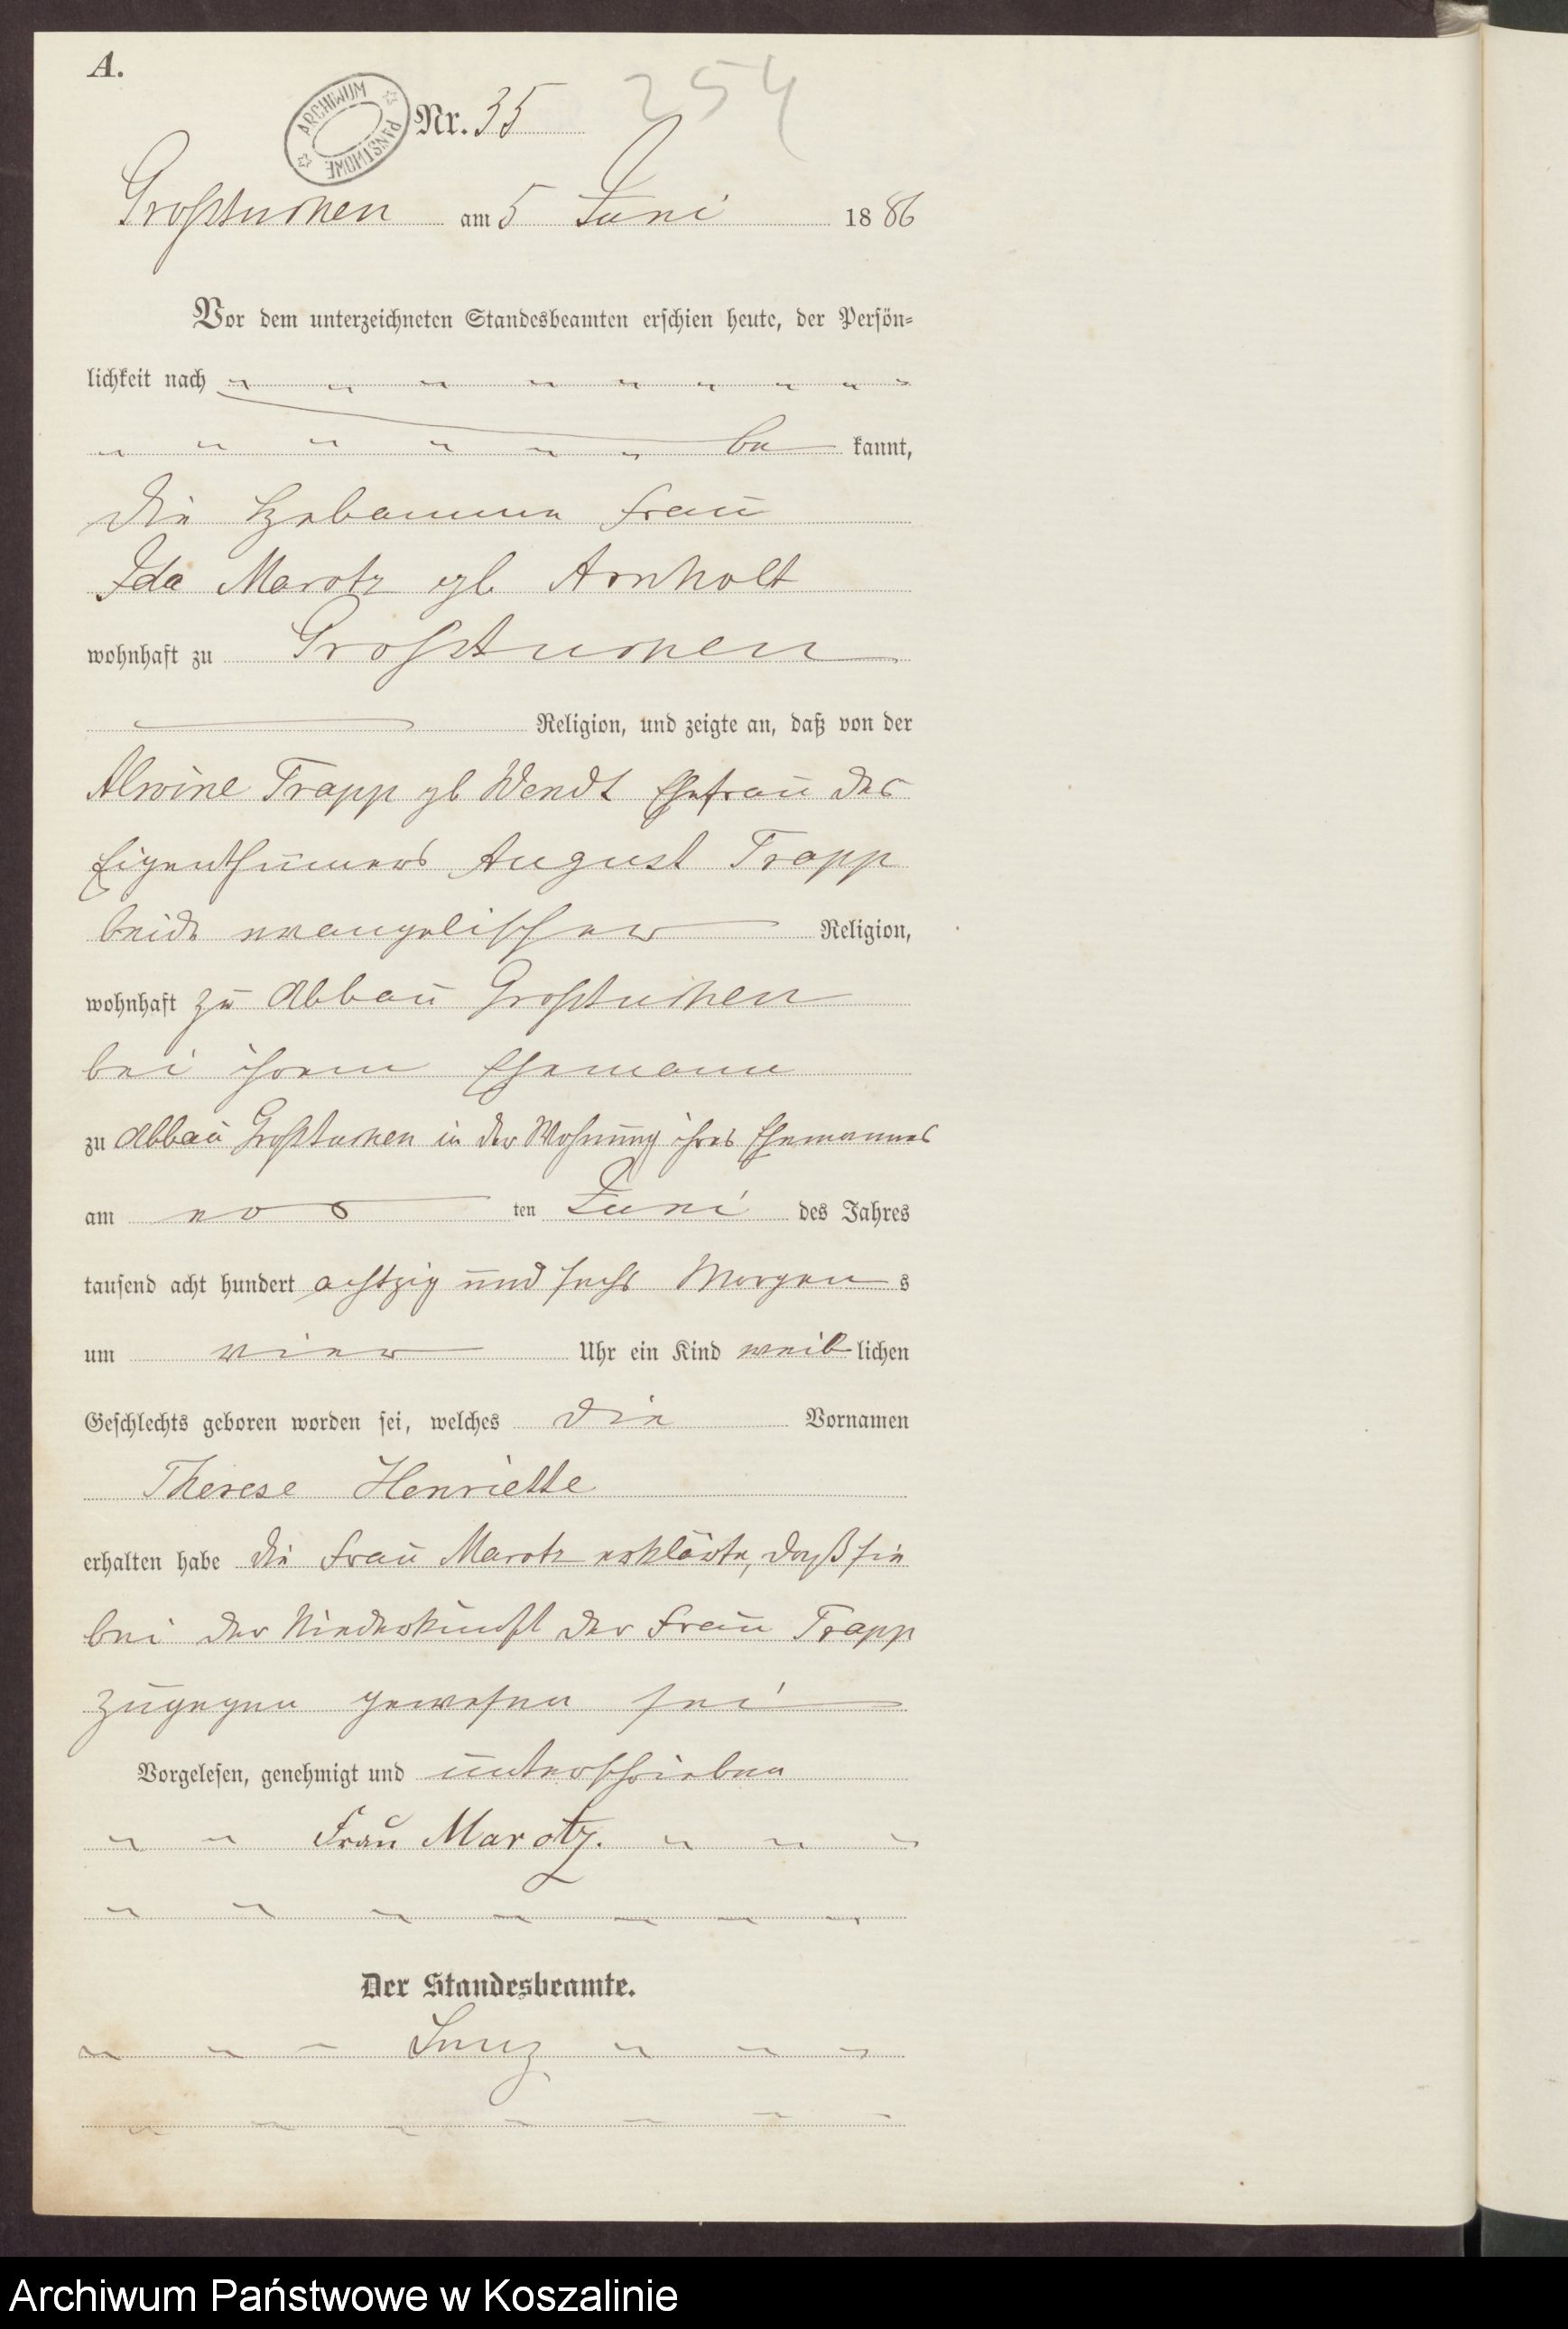 A.
254
ARCHIWUM PAŃSTWOWE
Nr. 35
Großtuchen am 5 Juni 1886
Vor dem unterzeichneten Standesbeamten erschien heute, der Persön-
lichkeit nach
be kannt,
die Hebamme Frau
Ida Marotz gb Arnholt
wohnhaft zu Großtuchen
Religion, und zeigte an, daß von der
Alwine Trapp gb Wendt Ehefrau des
Eigenthümers August Trapp
beide evangelischer Religion,
wohnhaft zu Abbau Großtuchen
bei ihrem Ehemann
zu Abbau Großtuchen in der Wohnung ihres Ehemannes
am ers ten Juni des Jahres
tausend acht hundert achtzig und sechs Morgen s
um vier Uhr ein Kind weib lichen
Geschlechts geboren worden sei, welches die Vornamen
Therese Henriette
erhalten habe die Frau Marotz erklärte, daß sie
bei der Niederkunft der Frau Trapp
zugegen gewesen sei
Vorgelesen, genehmigt und unterschrieben
Frau Marotz.
Der Standesbeamte.
Archiwum Państwowe w Koszalinie